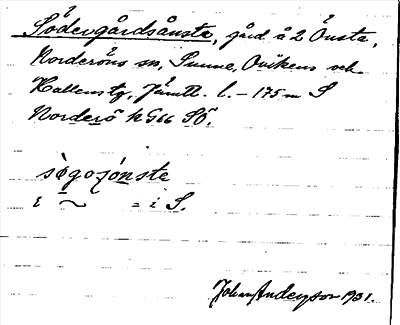 Södergårdsånsta, gård å 2 Önsta,
Norderöns sn, Sunne, Ovikens och
Hallens tg, Jämtl. l. – 175 m S
Norderö k G66 SÖ.
sògojónste
ε ~ = i S.
Johan Anderson 1931.